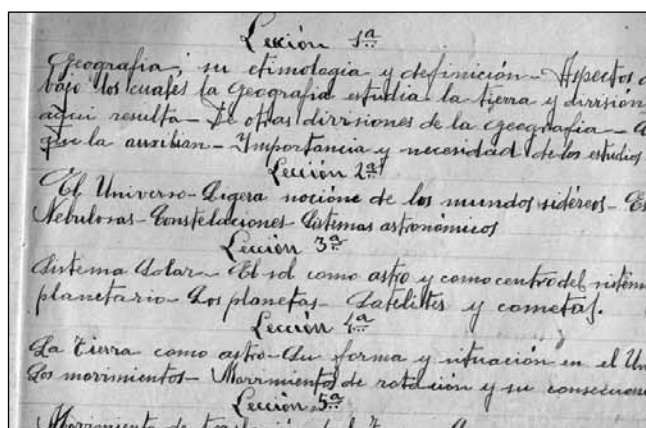 Lección 1ª
Geografía, su etimologia y definición - Aspectos
bajo los cuales la Geografia estudia la tierra y división
aqui resulta - De otras divisiones de la Geografia -
que la auxilian - Importancia y necesidad de los estudios
Lección 2ª
El Universo - Ligera noción de los mundos sidéreos -
Nebulosas - Constelaciones - Sistemas astronómicos
Lección 3ª
Sistema Solar - El sol como astro y como centro del sistema
planetario - Los planetas - Satélites y cometas.
Lección 4ª
La Tierra como astro - Su forma y situación en el
Los movimientos - Movimiento de rotación y su
Lección 5ª
Movimiento de